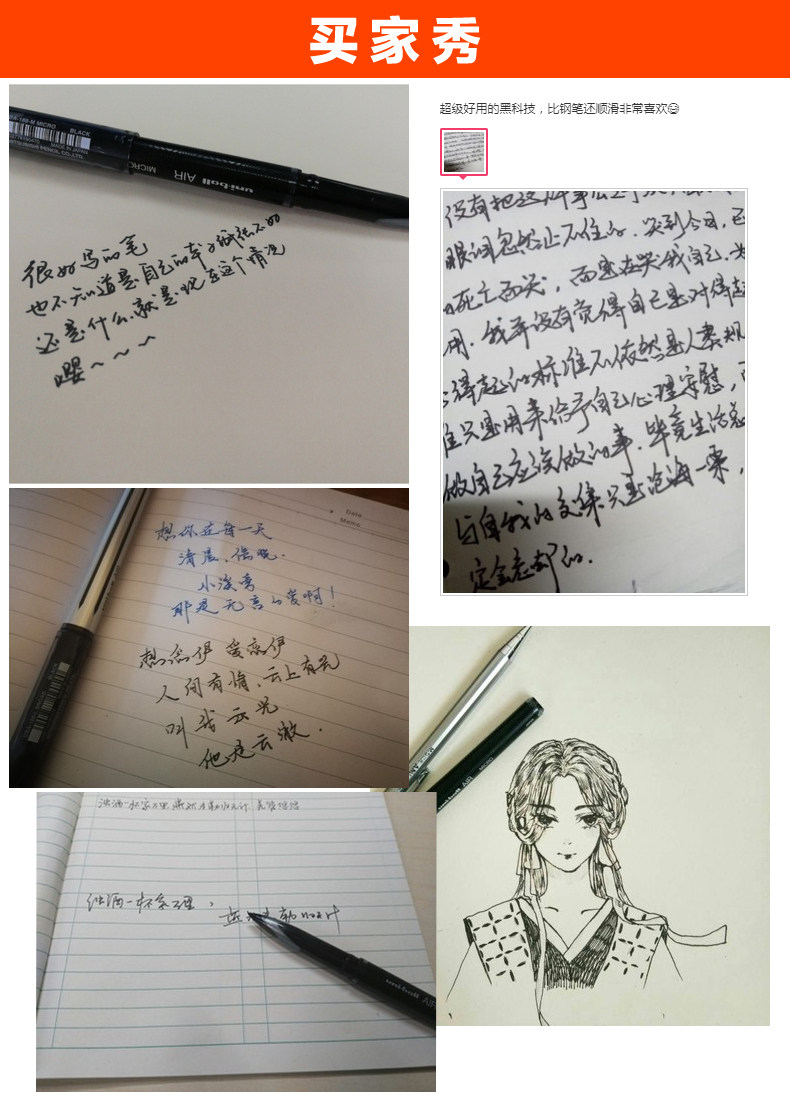 买家秀
超级好用的黑科技，比钢笔还顺滑非常喜欢
MICRO BLACK
MADE IN JAPAN
MITSUBISHI PENCIL CO.,LTD.
uni-ball AIR MICRO
很好写的笔
也不知道是自己的本子纸张不好
还是什么.就是现在这个情况
嘤~~~
没有把这件事
眼泪忽然止不住的.哭到今日,
死亡而哭,而是在哭我自己.
用.我并没有觉得自己是对得起
得起的标准不依然是人类规
只是用来给予自己心理安慰,
做自己应该做的事.毕竟生活总
与自我的交集只是沧海一粟,
定会忘却的.
Date
Memo
想你在每一天
清晨、傍晚.
那是无言的爱啊!
想念伊 爱恋伊
人间有情、云上有光
叫我云光
他是云澈.
浊酒一杯家万里
浊酒一杯家万里,
uni-ball AIR
uni-ball AIR MICRO